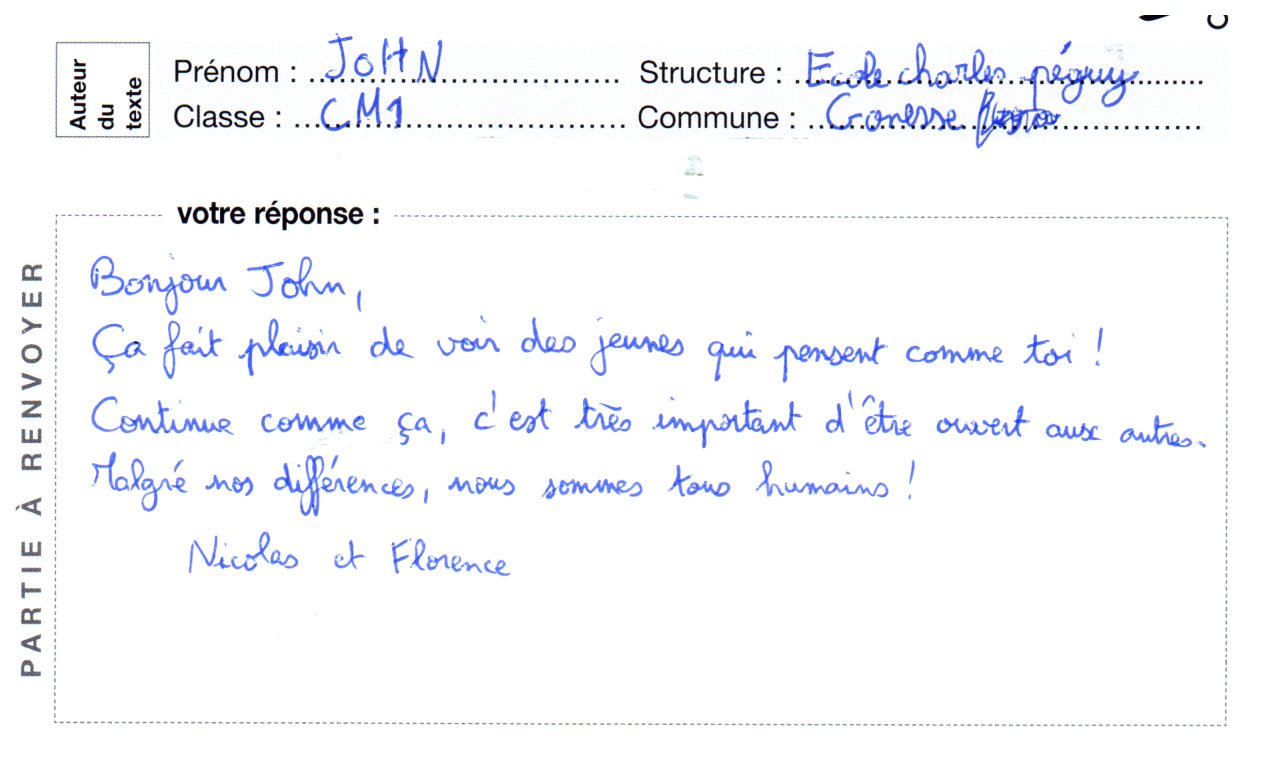 Auteur
du
texte
Prénom : JOHN Structure : Ecole charles péguy
Classe : CM1 Commune : Gonesse
votre réponse :
PARTIE À RENVOYER
Bonjour John,
Ça fait plaisir de voir des jeunes qui pensent comme toi !
Continue comme ça, c'est très important d'être ouvert aux autres.
Malgré nos différences, nous sommes tous humains !
Nicolas et Florence